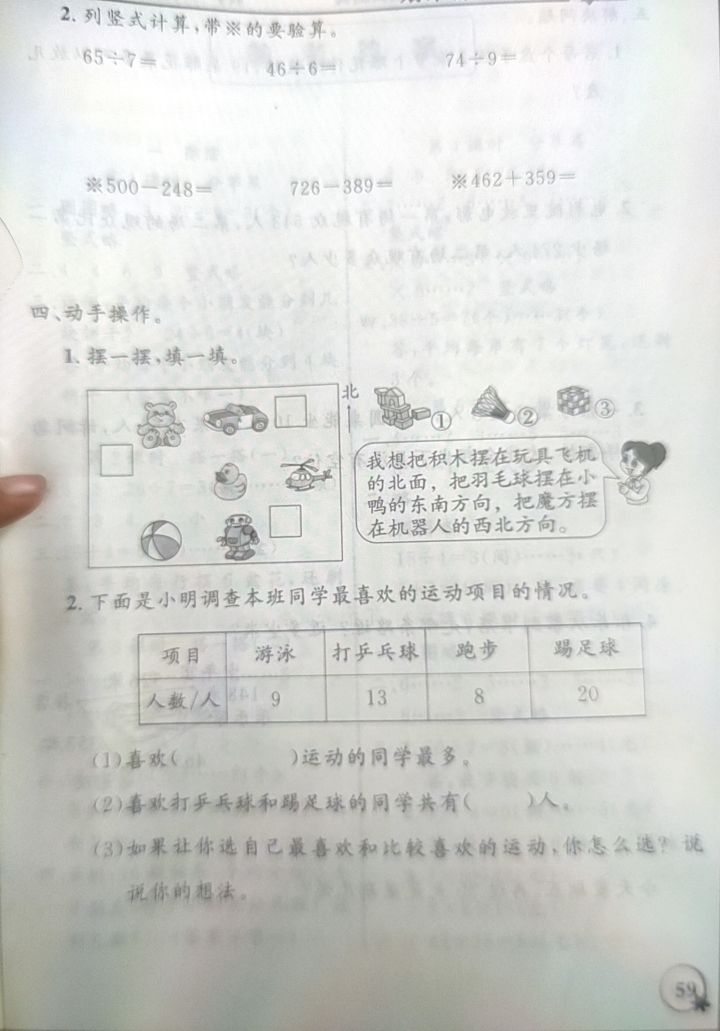 2. 列竖式计算,带※的要验算。
65÷7= 46÷6= 74÷9=
※500-248= 726-389= ※462+359=
四、动手操作。
1. 摆一摆,填一填。
北
① ② ③
我想把积木摆在玩具飞机
的北面，把羽毛球摆在小
鸭的东南方向，把魔方摆
在机器人的西北方向。
2. 下面是小明调查本班同学最喜欢的运动项目的情况。
项目 游泳 打乒乓球 跑步 踢足球
人数/人 9 13 8 20
(1)喜欢( )运动的同学最多。
(2)喜欢打乒乓球和踢足球的同学共有( )人。
(3)如果让你选自己最喜欢和比较喜欢的运动,你怎么选? 说
说你的想法。
59